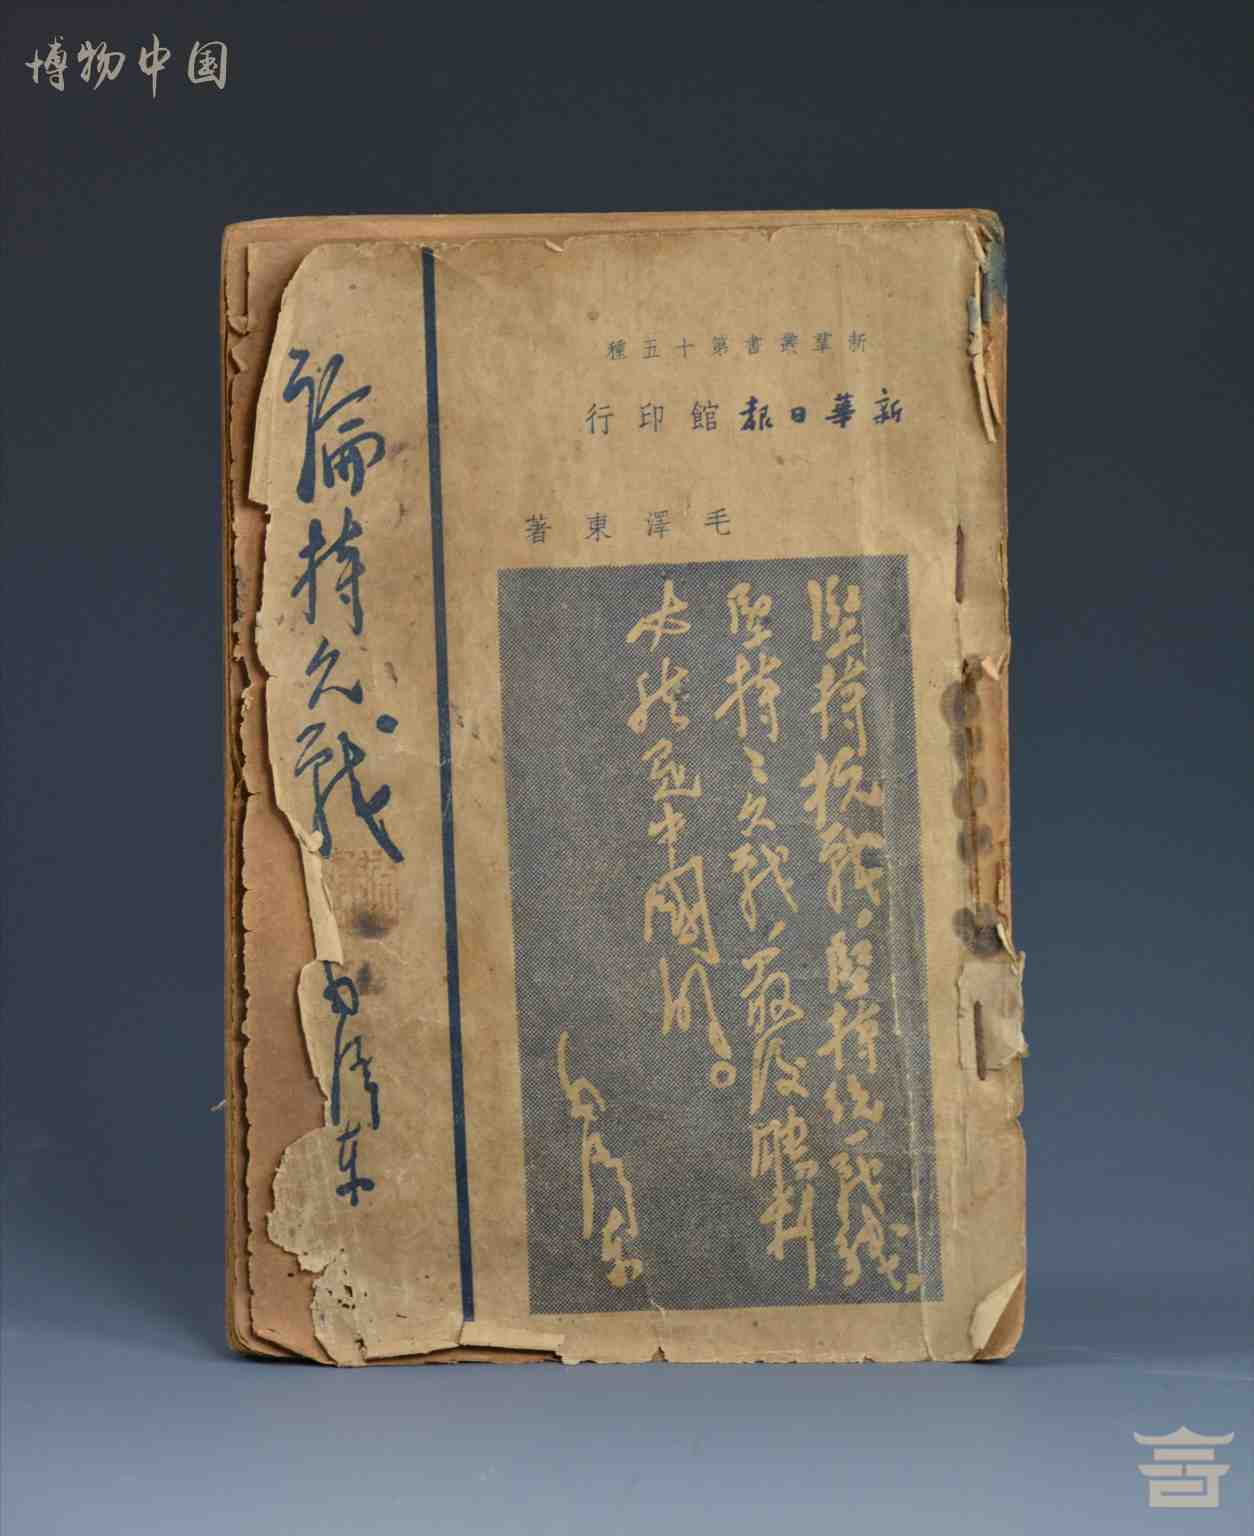 博物中国
新羣叢書第十五種
新華日報館印行
毛澤東著
堅持抗戰，堅持統一戰線，
堅持持久戰，最後勝利
必然是中國的。
毛澤東
論持久戰。
毛澤東